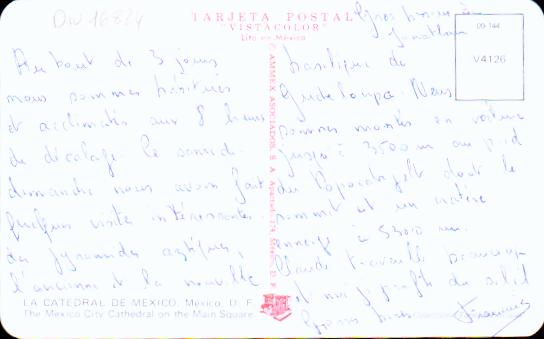 DW 16824
TARJETA POSTAL
"VISTACOLOR"
Lito en México
09-144
V4126
Gros bisous à
Jonathan
Au bout de 3 jours
nous sommes habitués
et acclimatés aux 8 heures
de décalage. Le samedi-
dimanche nous avons fait
quelques visites intéressantes.
des pyramides aztèques,
l'ancienne et la nouvelle
basilique de
Guadeloupe. Nous
sommes montés en voiture
jusqu'à 3500 m au pied
du Popocatepetl dont le
sommet est un cratère
enneigé à 5300 m.
travaille beaucoup
et moi je profite du soleil
Bisous
© AMMEX ASOCIADOS, S. A. México 1, D. F.
LA CATEDRAL DE MEXICO, México, D. F.
The Mexico City Cathedral on the Main Square